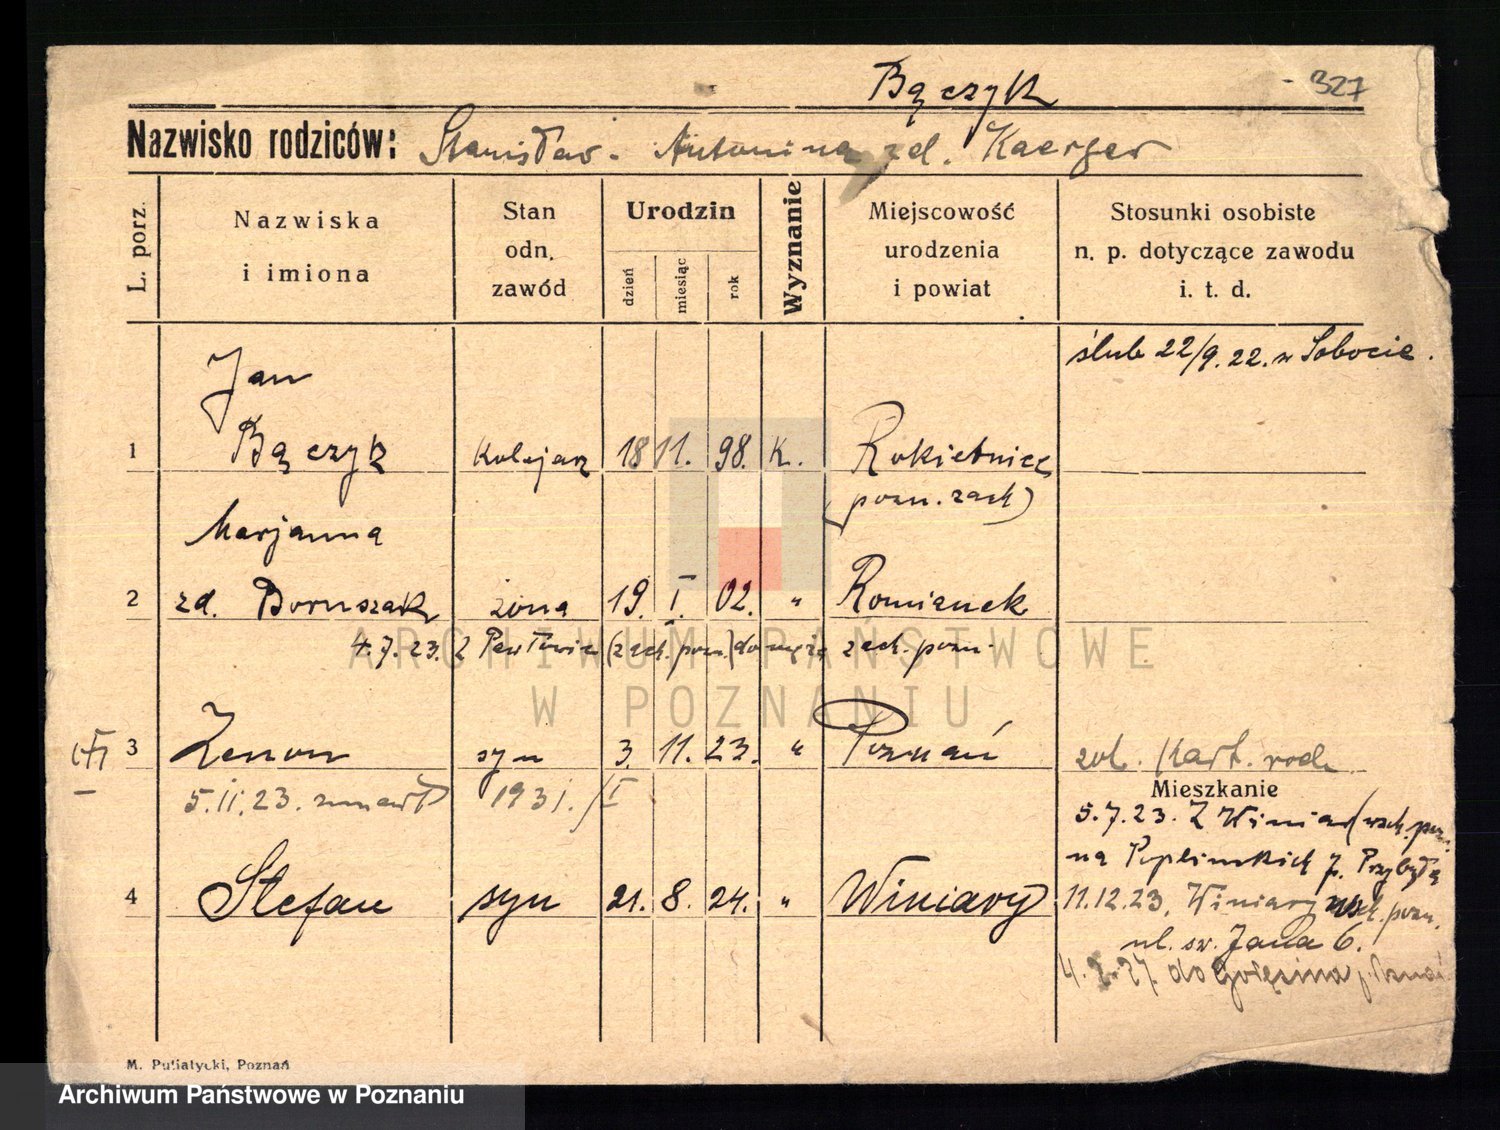 Bączyk
327
Nazwisko rodziców: Stanisław. Antonina zd. Kaerger
L. porz.
Nazwiska i imiona
Stan odn. zawód
Urodzin
dzień
miesiąc
rok
Wyznanie
Miejscowość urodzenia i powiat
Stosunki osobiste n. p. dotyczące zawodu i. t. d.
ślub 22/9. 22. w Sobocie.
Jan
1 Bączyk kolejarz 18 11. 98. K. Rokietnica
(pozn. zach)
Marjanna
2 zd. Boruszak żona 19. I. 02. " Romianek
4.7.23. (Z Pawłowic (zach. pozn.) do męża zach. pozn.
3 Zenon syn 3. 11. 23. " Poznań
zob. kart. rodz.
5.11.23. zmarł 1931. /I
Mieszkanie
5.7.23. Z Winiar (wsch. pozn.
na Poplińskich p. Przybyłą
4 Stefan syn 21. 8. 24. " Winiary
11.12.23. Winiary wsch. pozn.
ul. św. Jana 6.
do Golęcina p. Poznań
M. Putiatycki, Poznań
ARCHIWUM PAŃSTWOWE
W POZNANIU
Archiwum Państwowe w Poznaniu